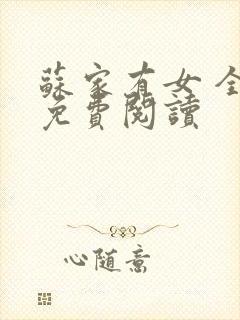 蘇家有女 全
免費閱讀
心随意